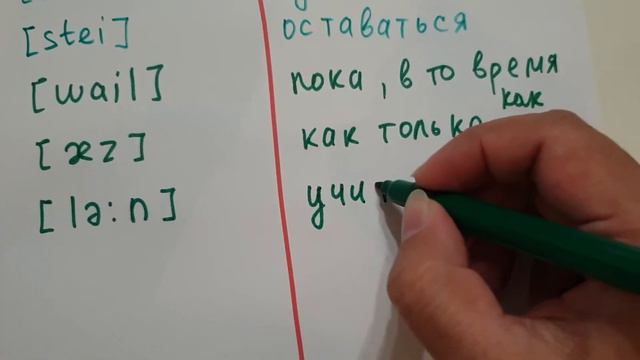 [stei] оставаться
[wail] пока, в то время
как
[æz] как только
[lə:n] учи